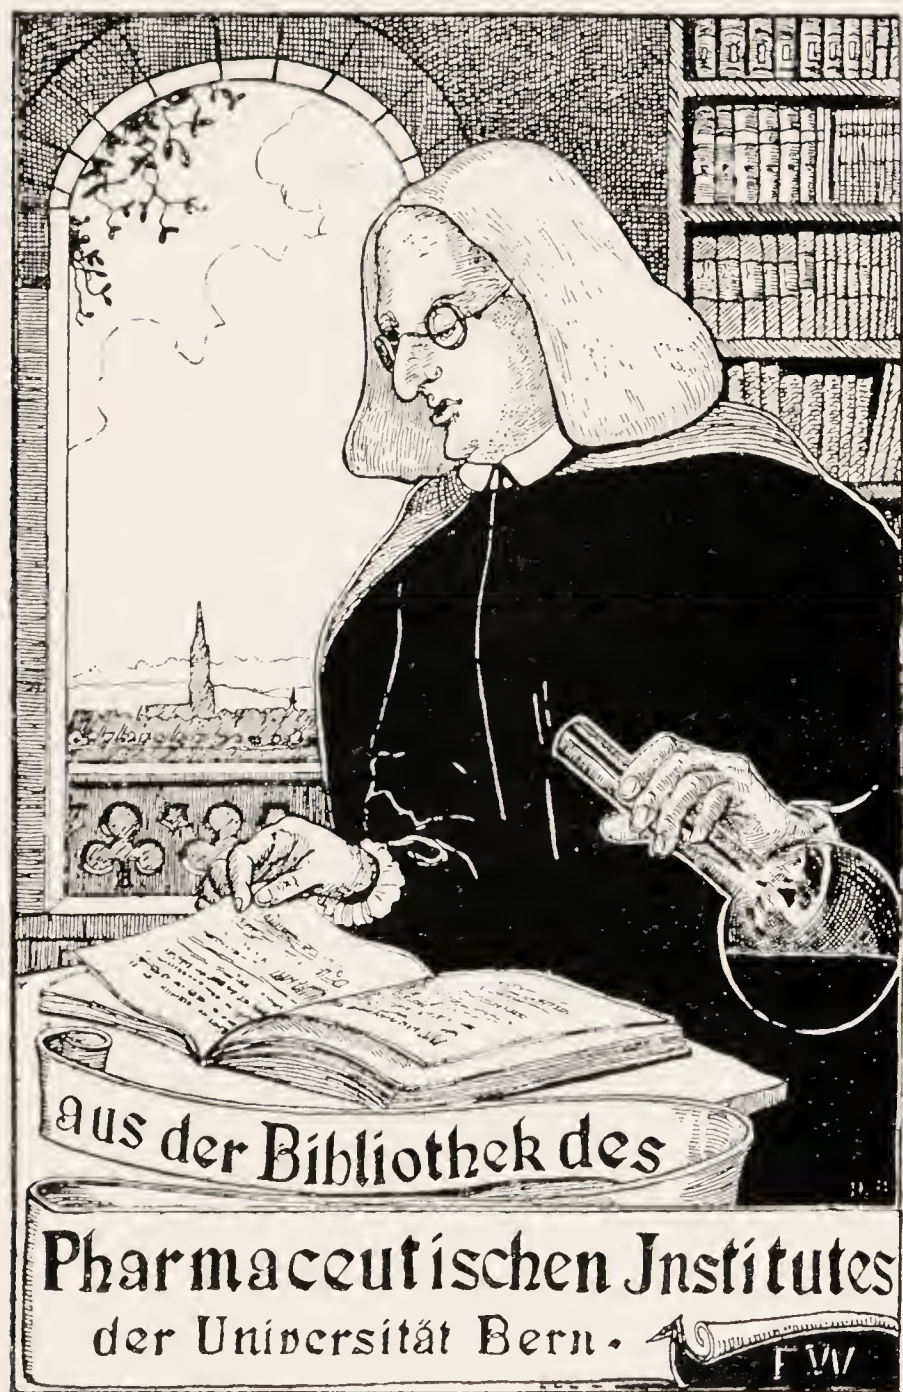 aus der Bibliothek des
Pharmaceutischen Jnstitutes
der Universität Bern.
F W